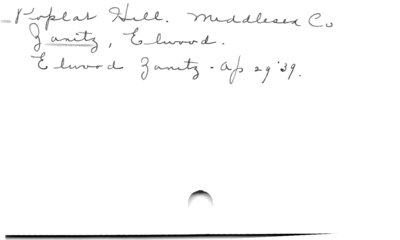 Poplar Hill. Middlesex Co
Zanitz, Elwood.
Elwood Zanitz - Ap 29 '39.